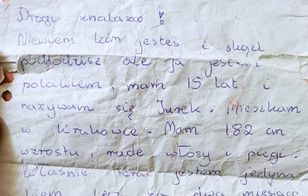 Drogi znalazco!
Niewiem kim jesteś i skąd
pochodzisz ale ja jestem
polakiem, mam 15 lat i
nazywam się Jurek. Mieszkam
w Krakowie. Mam 182 cm
wzrostu, rude włosy i piegi.
Właśnie teraz jestem jedyna